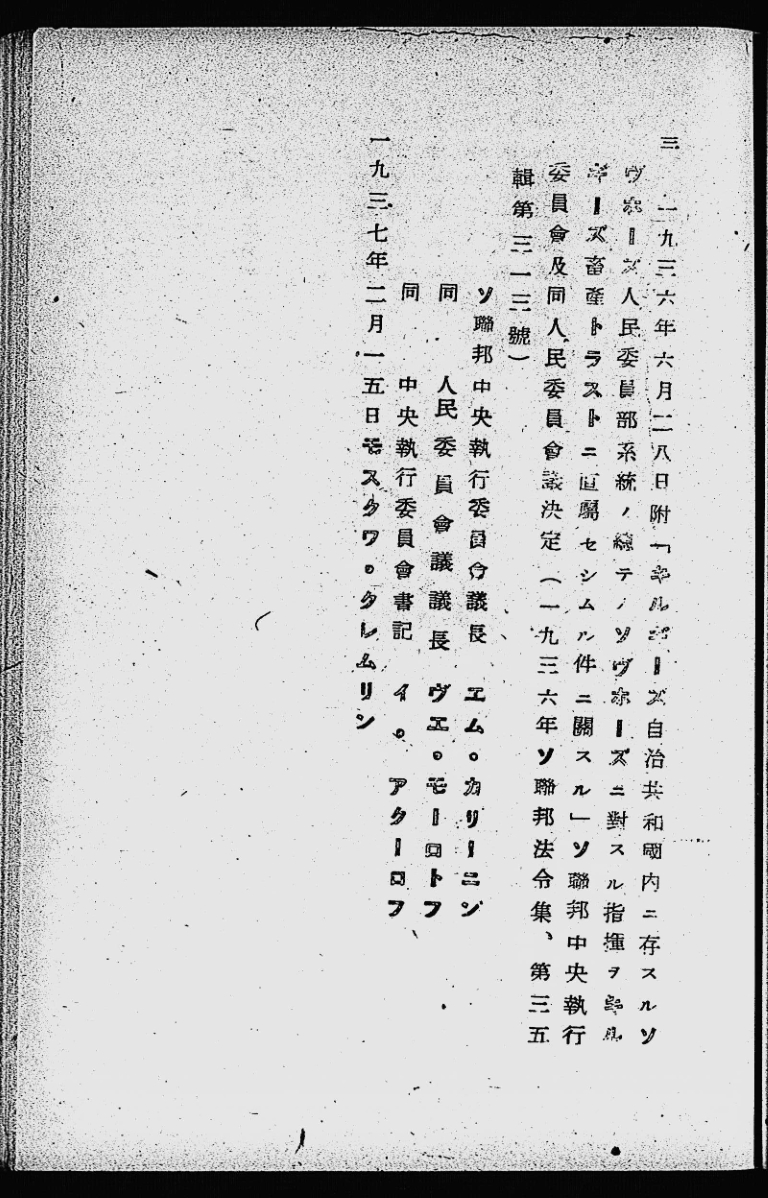 三　一九三六年六月二八日附「キルギーズ自治共和國内ニ存スルソ
ヴホーズ人民委員部系統ノ總テノソヴホーズニ對スル指揮ヲキル
ギーズ畜產トラストニ直屬セシムル件ニ關スル」ソ聯邦中央執行
委員會及同人民委員會議決定（一九三六年ソ聯邦法令集、第三五
輯第三一三號）
ソ聯邦中央執行委員會議長　エム。カリーニン
同　人民委員會議議長　ヴエ。モーロトフ
同　中央執行委員會書記　イ。アクーロフ
一九三七年二月一五日モスクワ。クレムリン